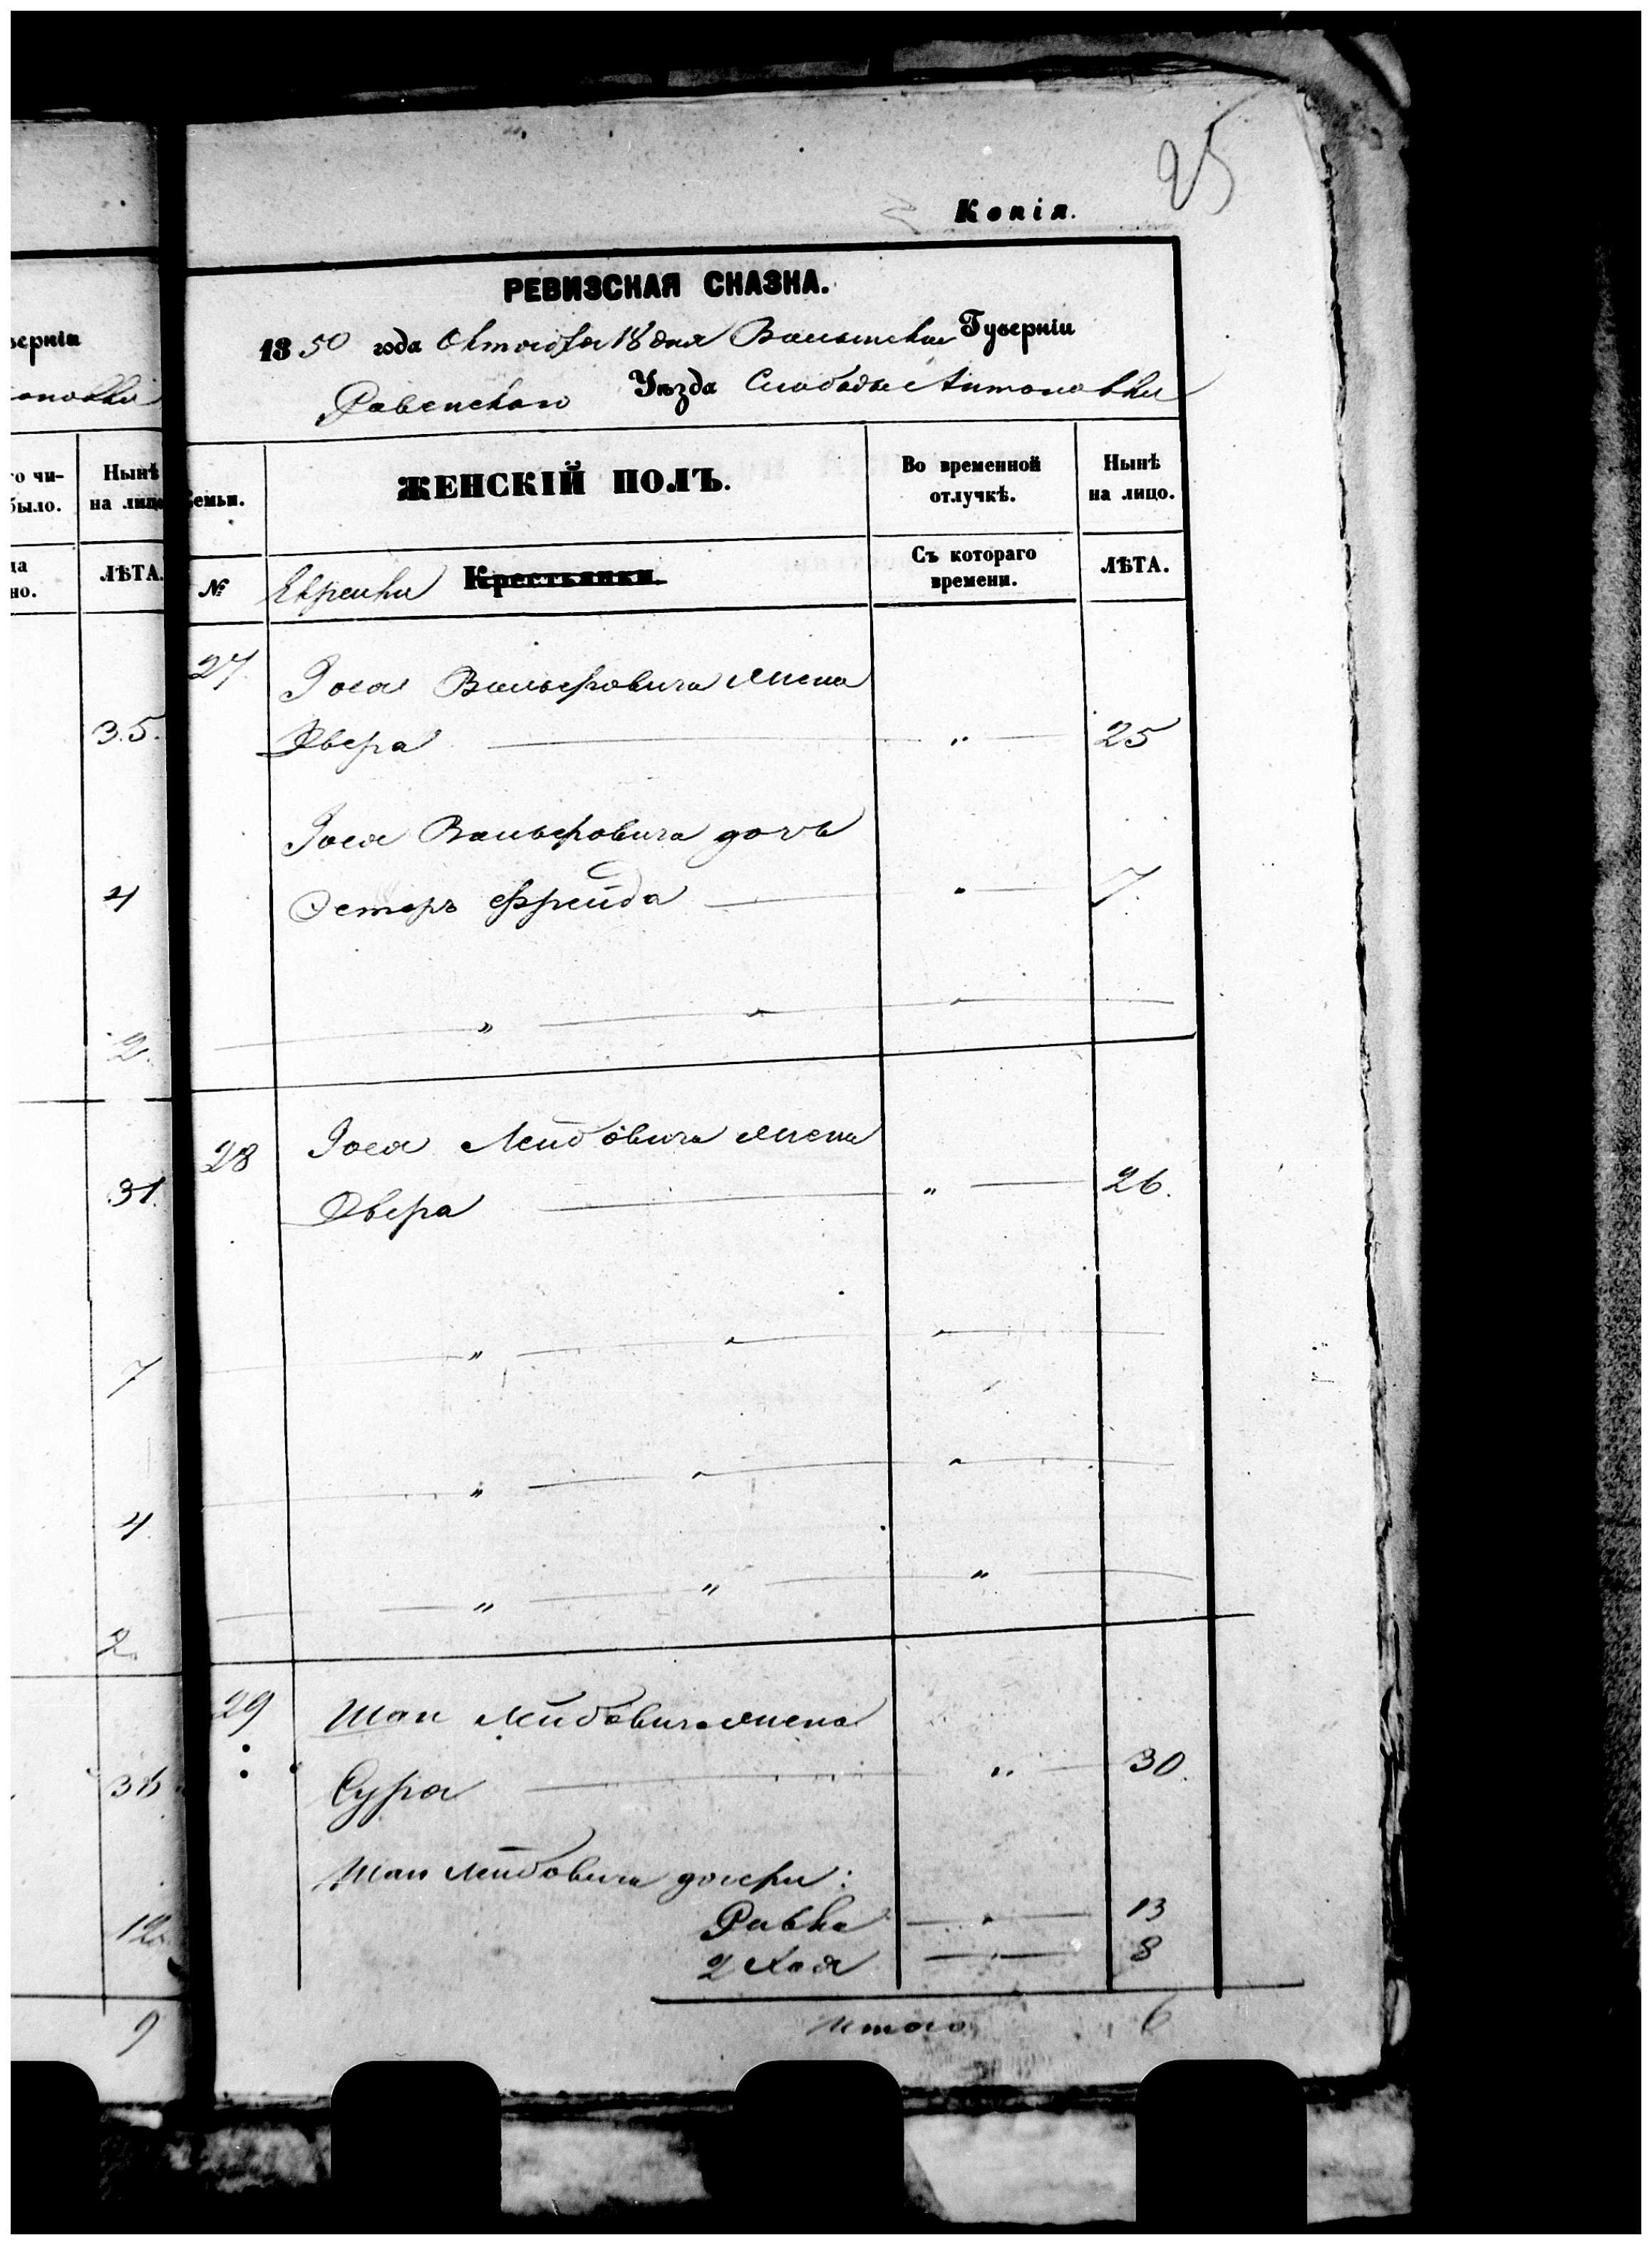 25
Копія.
РЕВИЗСКАЯ СКАЗКА.
1850 года Октября 18 дня Волынской Губерніи
Ровенского Уѣзда Слободы Антоновки
Семьи.
ЖЕНСКІЙ ПОЛЪ.
Во временной отлучкѣ.
Нынѣ на лицо.
№
Еврейки Крестьянки.
Съ котораго времени.
ЛѢТА.
27
Іося Вольфовича жена
Двера " 25
Іося Вольфовича дочь
Эстеръ Фрейда " 7.
28
Іося Лейбовича жена
Двера " 26.
29
Шаи Лейбовича жена
Сура " 30.
Шаи Лейбовича дочери:
Равка " 13
2 Хая " 8
Итого 6
верніи
оновки
го чи-
было.
Нынѣ
на лицо
да
но.
ЛѢТА.
35.
4
2.
31.
7
4.
2.
36
12
9